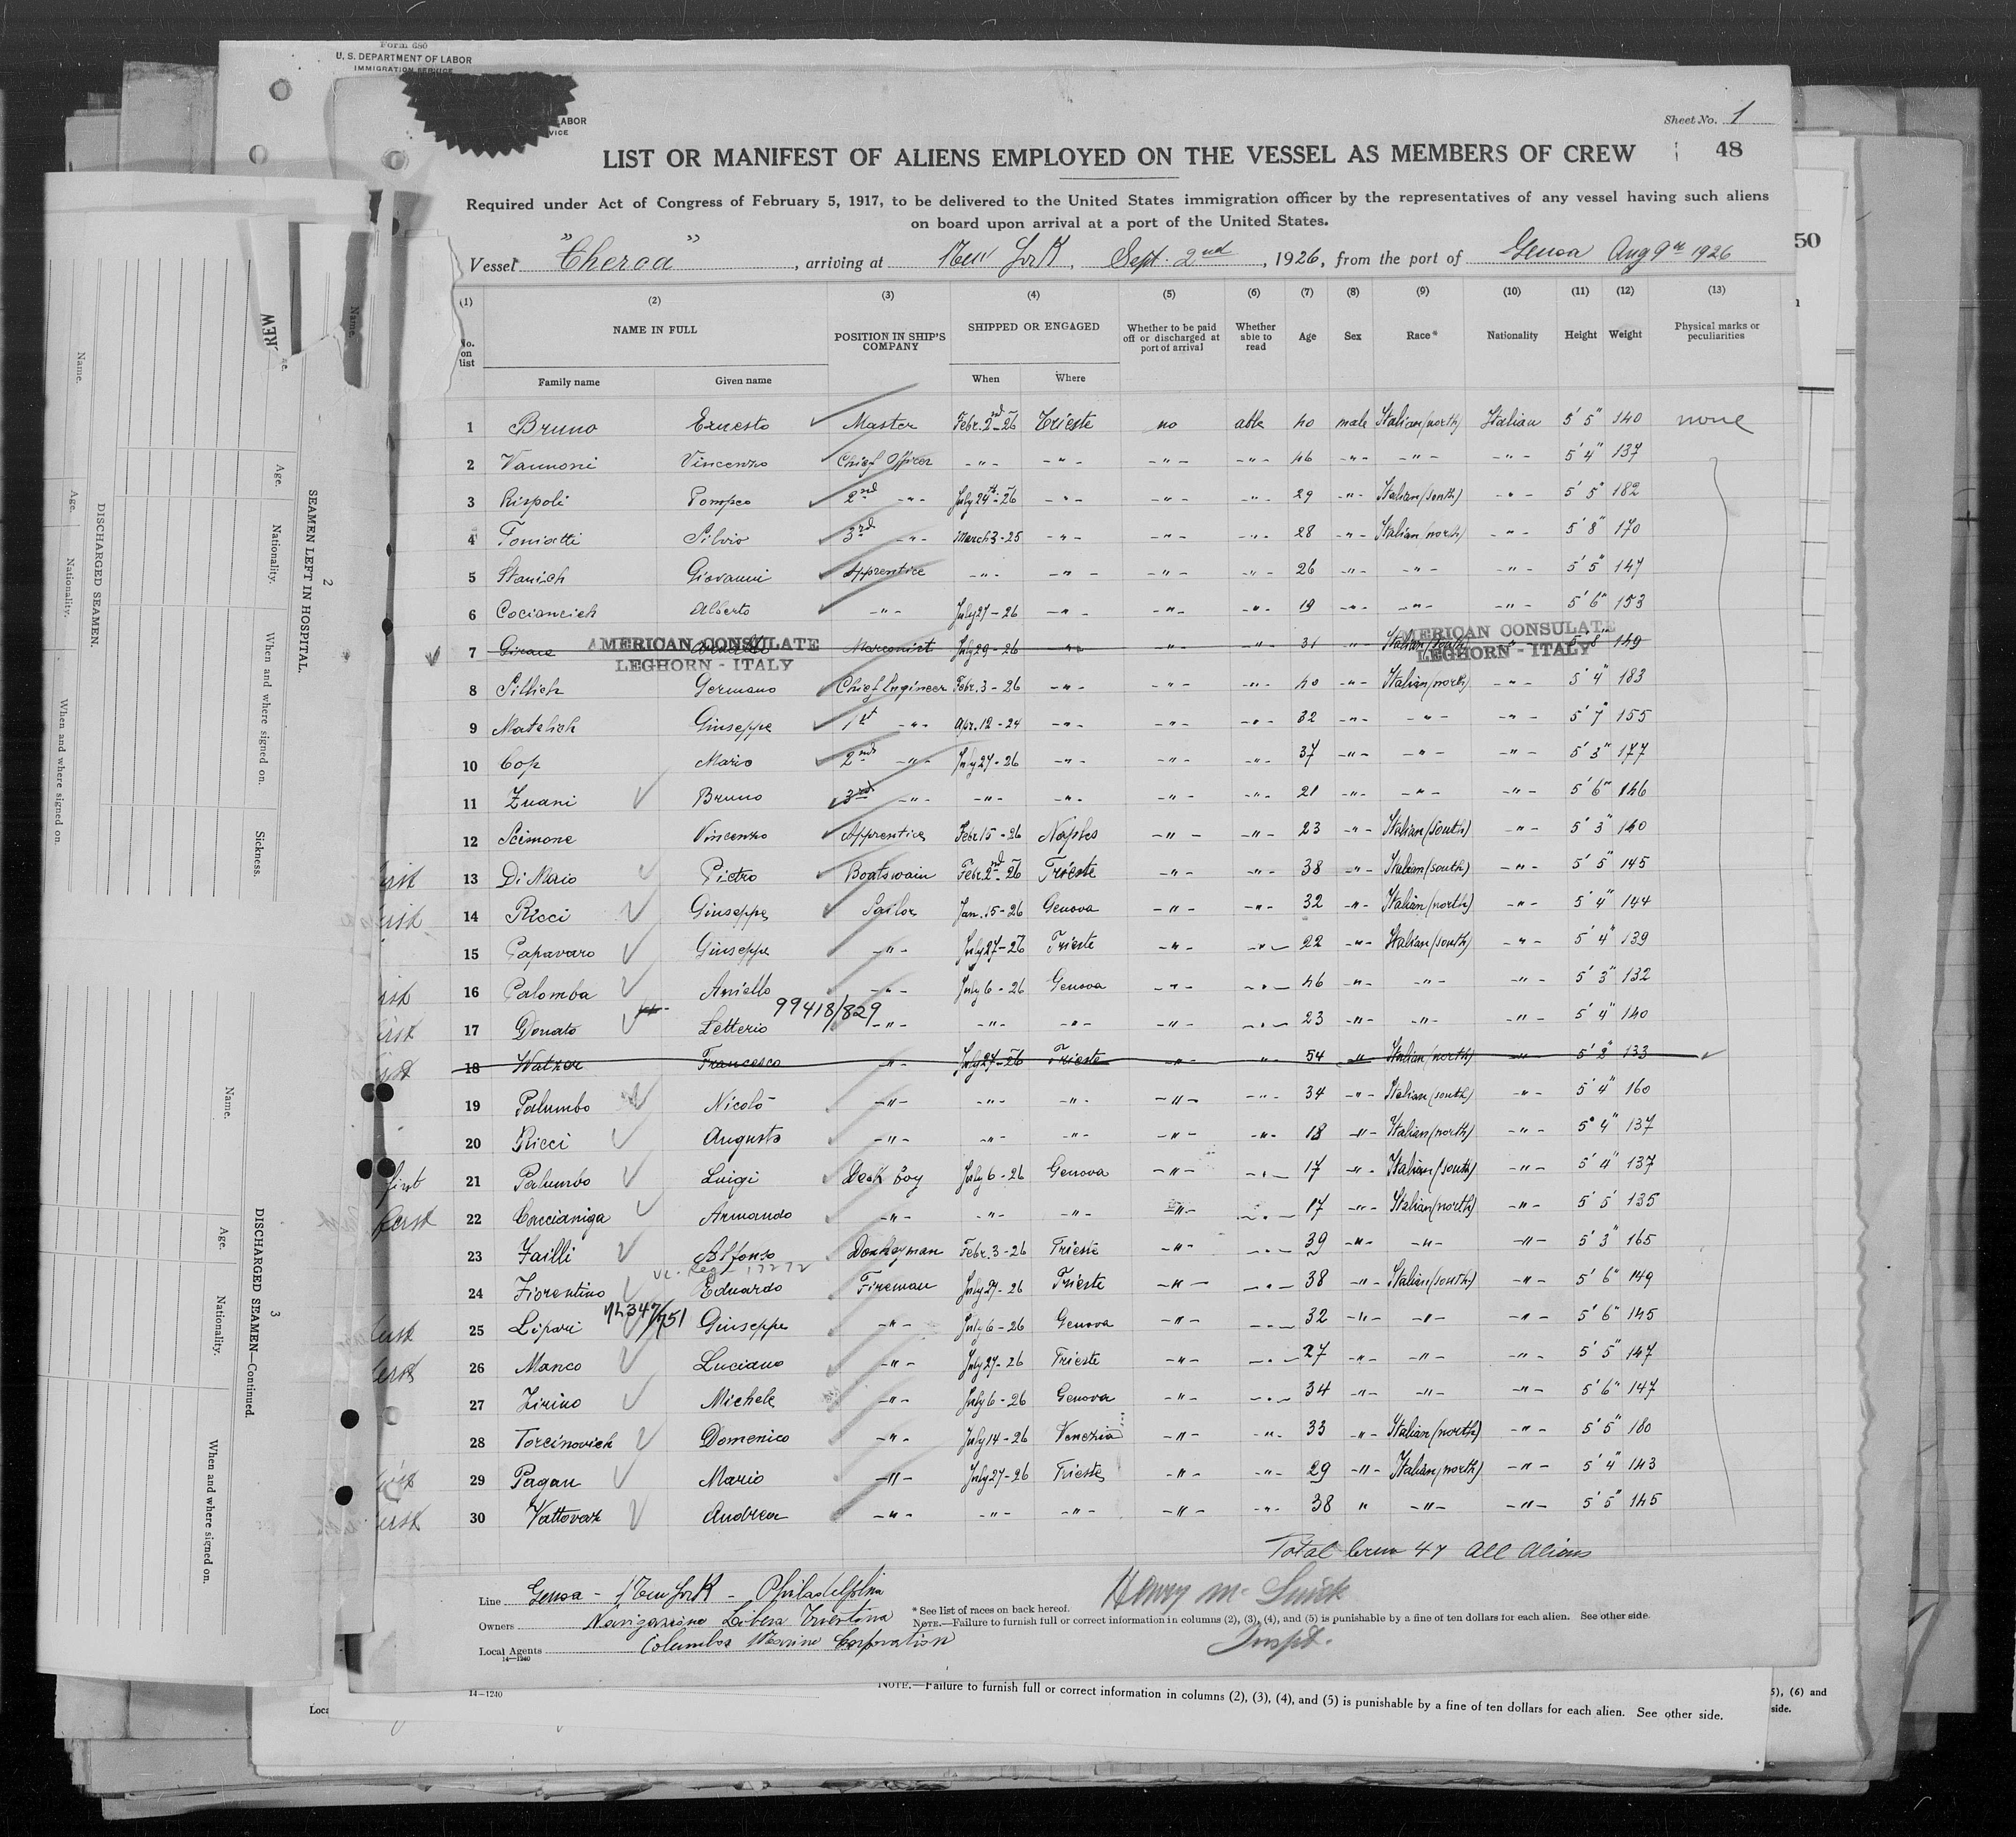 Form 680
U. S. DEPARTMENT OF LABOR
IMMIGRATION SERVICE
Sheet No. 1
LIST OR MANIFEST OF ALIENS EMPLOYED ON THE VESSEL AS MEMBERS OF CREW
48
Required under Act of Congress of February 5, 1917, to be delivered to the United States immigration officer by the representatives of any vessel having such aliens
on board upon arrival at a port of the United States.
Vessel "Cherca", arriving at New York, Sept. 2nd, 1926, from the port of Genoa Aug 9th 1926
50
(1) (2) (3) (4) (5) (6) (7) (8) (9) (10) (11) (12) (13)
No. on list NAME IN FULL POSITION IN SHIP'S COMPANY SHIPPED OR ENGAGED Whether to be paid off or discharged at port of arrival Whether able to read Age Sex Race* Nationality Height Weight Physical marks or peculiarities
Family name Given name When Where
1 Bruno Ernesto Master Febr. 2nd-26 Trieste no able 40 male Italian (north) Italian 5' 5" 140 none
2 Vannoni Vincenzo Chief Officer -"- -"- -"- -"- 46 -"- -"- -"- 5' 4" 137
3 Rispoli Pompeo 2nd -"- July 24th-26 -"- -"- -"- 29 -"- Italian (south) -"- 5' 5" 182
4 Foniatti Silvio 3rd -"- March 3-25 -"- -"- -"- 28 -"- Italian (north) -"- 5' 8" 170
5 Stanich Giovanni Apprentice -"- -"- -"- -"- 26 -"- -"- -"- 5' 5" 147
6 Cociancich Alberto -"- July 27-26 -"- -"- -"- 19 -"- -"- -"- 5' 6" 153
7 Marconist July 29-26 -"- -"- 31 -"- Italian (south) -"- 5' 8" 149
AMERICAN CONSULATE
LEGHORN - ITALY
AMERICAN CONSULATE
LEGHORN - ITALY
8 Sillich Germano Chief Engineer Febr. 3-26 -"- -"- -"- 40 -"- Italian (north) -"- 5' 4" 183
9 Matelich Giuseppe 1st -"- Apr. 12-24 -"- -"- -"- 32 -"- -"- -"- 5' 7" 155
10 Cop Mario 2nd -"- July 27-26 -"- -"- -"- 37 -"- -"- -"- 5' 3" 177
11 Zuani Bruno 3rd -"- -"- -"- -"- -"- 21 -"- -"- -"- 5' 6" 146
12 Scimone Vincenzo Apprentice Febr. 15-26 Naples -"- -"- 23 -"- Italian (south) -"- 5' 3" 140
13 Di Maio Pietro Boatswain Febr. 2nd-26 Trieste -"- -"- 38 -"- Italian (south) -"- 5' 5" 145
14 Ricci Giuseppe Sailor Jan. 15-26 Genova -"- -"- 32 -"- Italian (north) -"- 5' 4" 144
15 Papavaro Giuseppe -"- July 27-26 Trieste -"- -"- 22 -"- Italian (south) -"- 5' 4" 139
16 Palomba Aniello -"- July 6-26 Genova -"- -"- 46 -"- -"- -"- 5' 3" 132
99418/829
17 Donato Letterio -"- -"- -"- -"- -"- 23 -"- -"- -"- 5' 4" 140
18 Walzer Francesco -"- July 27-26 Trieste -"- -"- 54 -"- Italian (north) -"- 5' 2" 133
19 Palumbo Nicolò -"- -"- -"- -"- -"- 34 -"- Italian (south) -"- 5' 4" 160
20 Ricci Augusto -"- -"- -"- -"- -"- 18 -"- Italian (north) -"- 5' 4" 137
first 21 Palumbo Luigi Deck boy July 6-26 Genova -"- -"- 17 -"- Italian (south) -"- 5' 4" 137
first 22 Corccianiga Armando -"- -"- -"- -"- -"- 17 -"- Italian (north) -"- 5' 5" 135
23 Failli Alfonso Donkeyman Febr. 3-26 Trieste -"- -"- 39 -"- -"- -"- 5' 3" 165
24 Fiorentino Eduardo Fireman July 27-26 Trieste -"- -"- 38 -"- Italian (south) -"- 5' 6" 149
74347/751
25 Lipari Giuseppe -"- July 6-26 Genova -"- -"- 32 -"- -"- -"- 5' 6" 145
26 Manco Luciano -"- July 27-26 Trieste -"- -"- 27 -"- -"- -"- 5' 5" 147
27 Zirino Michele -"- July 6-26 Genova -"- -"- 34 -"- -"- -"- 5' 6" 147
28 Torcinovich Domenico -"- July 14-26 Venezia -"- -"- 33 -"- Italian (north) -"- 5' 5" 180
29 Pagan Mario -"- July 27-26 Trieste -"- -"- 29 -"- Italian (north) -"- 5' 4" 143
30 Vattovaz Andrea -"- -"- -"- -"- -"- 38 " -"- -"- 5' 5" 145
Total Crew 47 All Aliens
Line Genoa - New York - Philadelphia
Owners Navigazione Libera Triestina
Local Agents Columbus Marine Corporation
14—1240
*See list of races on back hereof.
NOTE.—Failure to furnish full or correct information in columns (2), (3), (4), and (5) is punishable by a fine of ten dollars for each alien. See other side.
Inspt.
14—1240
NOTE.—Failure to furnish full or correct information in columns (2), (3), (4), and (5) is punishable by a fine of ten dollars for each alien. See other side.
5), (6) and
side.
2
SEAMEN LEFT IN HOSPITAL.
Name. Age. Nationality. When and where signed on. Sickness.
DISCHARGED SEAMEN.
Name. Age. Nationality. When and where signed on.
3
DISCHARGED SEAMEN—Continued.
Name. Age. Nationality. When and where signed on.